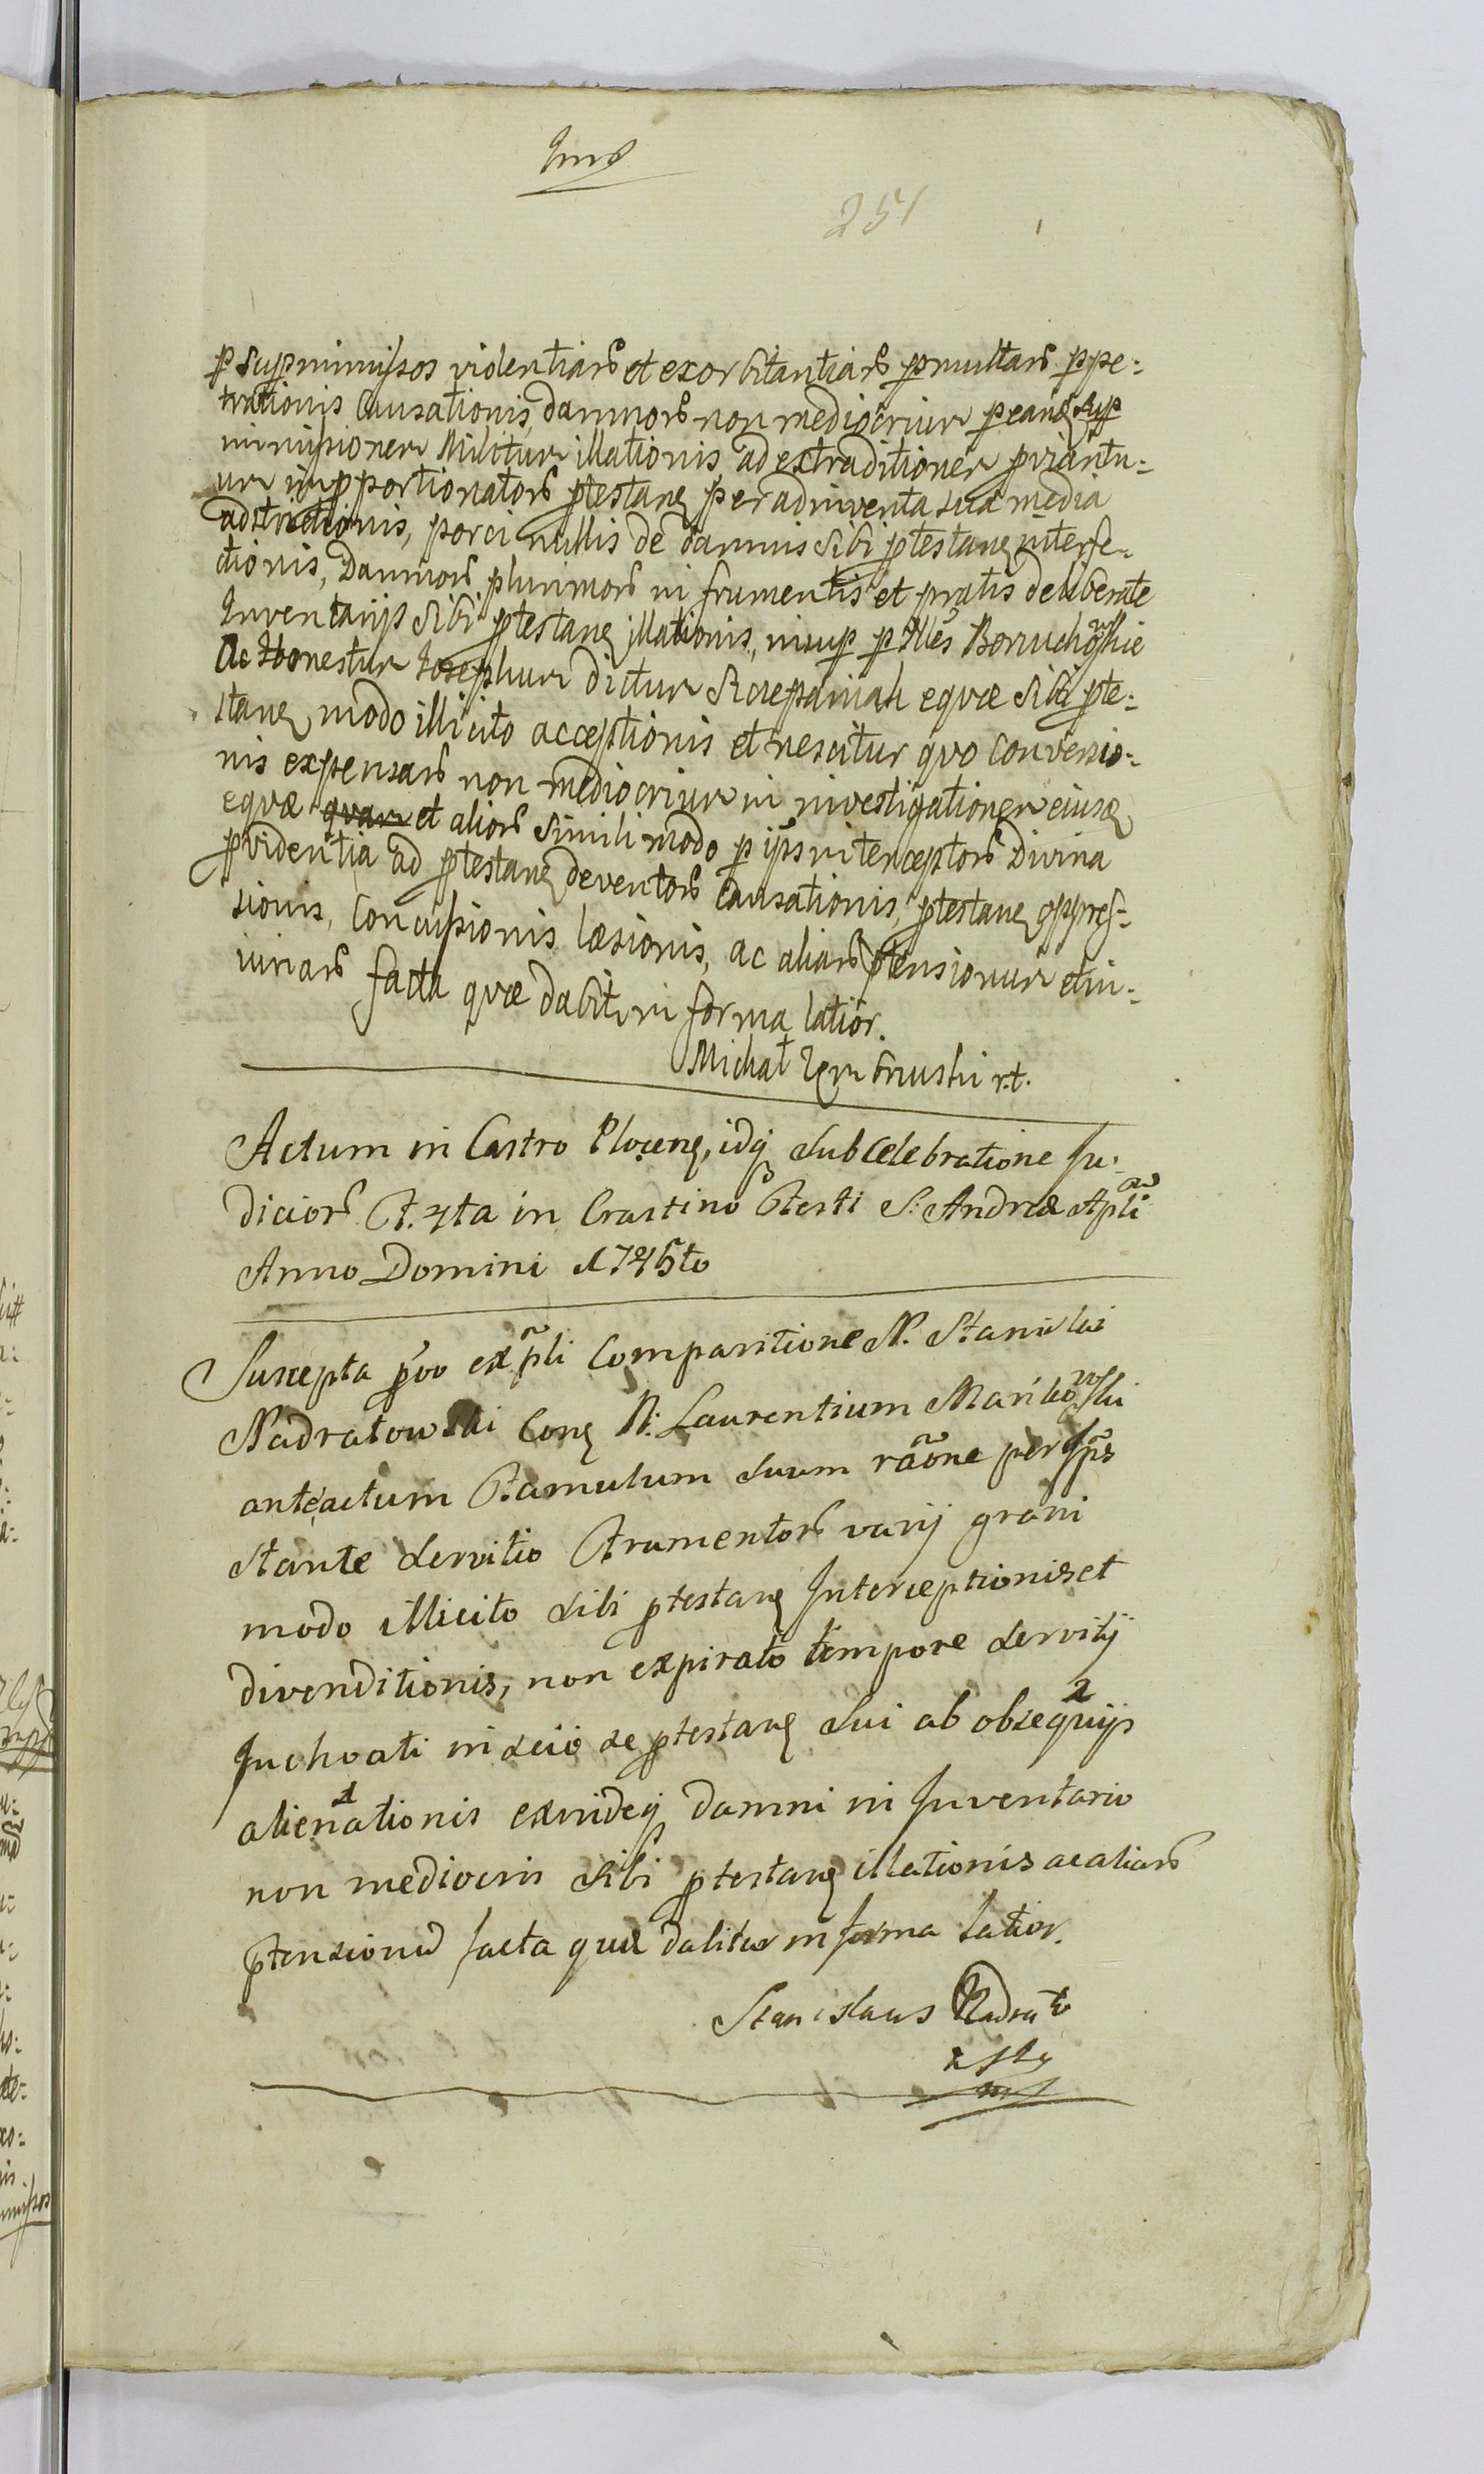 251
p supimmissos violentiarũ et exorbitantiarũ pmultarũ ppe-
trationis Causationis, damnorũ non mediocrium peane sup
immissionem Militum illationis, ad extraditionem pviantu-
um impportionatorũ ptestane per adinventa sua media
adstrictionis, porci nullis de damnis sibi ptestane interfe-
ctionis, Damnorũ plurimorũ in frumentis et pratis deliberate
Inventarijs sibi ptestane illationis, insup p Illes
Ac Honestum Josephum dictum equæ sibi pte-
stane modo illicito acceptionis et nescitur quo Conversio-
nis expensarũ non mediocrium in investigationem eiusde
equæ quam et aliorũ simili modo p ipsũ interceptorũ Divina
pvidentia ad ptestane deventorũ Causationis, ptestane oppres-
sionis, Concussionis læsionis, ac aliarũ ptensionum et in-
iuriarũ facta quæ dabitr in forma latior.
Michał r.t.
Actum in Castro Plocene, idq sub celebratione Ju-
diciorũ F. 4ta in Crastino Festi S: Andreæ Apli
Anno Domini 1745to
Suscepta põo expli Comparitione N. Stanislai
Nadratowski Cone N: Laurentium Mańkowski
anteactum Famulum suum raõne per Ipũs
stante servitio Frumentorũ varij grani
modo illicito sibi ptestane Interceptionis et
divenditionis, non expirato tempore servitij
Inchoati in scio se ptestane sui ab obsequijs 2
alienationis 1 exindeq damni in Inventario
non mediocris sibi ptestane illationis ac aliarũ
ptensionũ facta quæ dabitur in forma latior.
Stanislaus Nadrato
wsky
mp